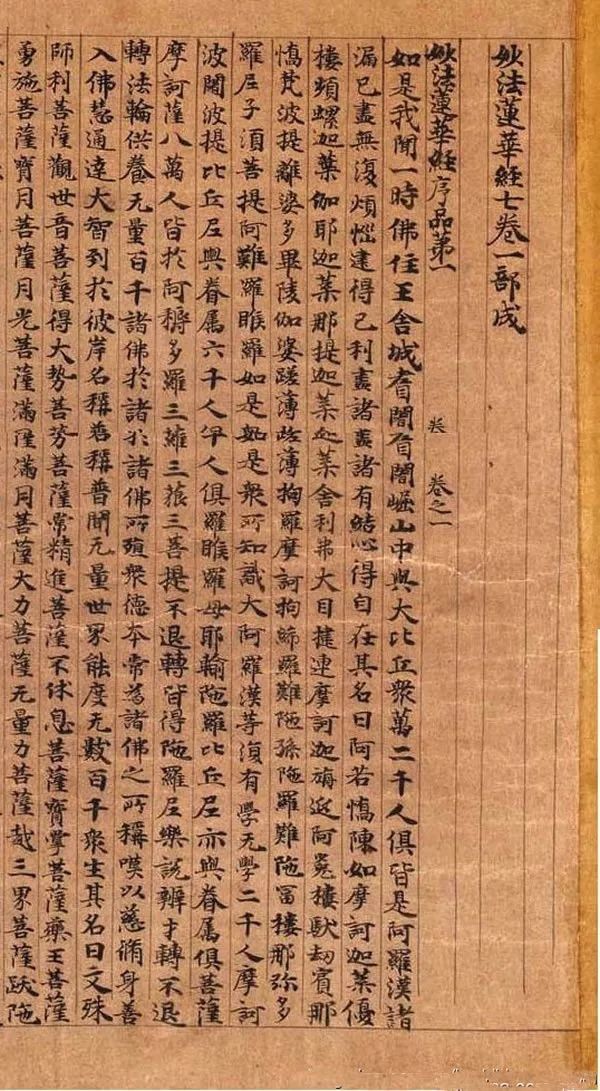 妙法蓮華經七卷一部成
妙法蓮華經序品第一 卷之一
如是我聞一時佛住王舍城耆闍耆闍崛山中與大比丘衆萬二千人俱皆是阿羅漢諸
漏已盡無復煩惱逮得己利盡諸盡諸有結心得自在其名曰阿若憍陳如摩訶迦葉優
樓頻螺迦葉伽耶迦葉那提迦葉迦葉舍利弗大目揵連摩訶迦旃延阿㝹樓馱劫賓那
憍梵波提離婆多畢陵伽婆蹉薄薄拘羅摩訶拘絺羅難陁孫陁羅難陁冨樓那弥多
羅尼子須菩提阿難羅睺羅如是如是衆所知識大阿羅漢等復有學无學二千人摩訶
波闍波提比丘尼與眷属六千人俱羅睺羅母耶輸陁羅比丘尼亦與眷属俱菩薩
摩訶薩八萬人皆於阿耨多羅三藐三菩提不退轉皆得陁羅尼樂說辯才轉不退
轉法輪供養无量百千諸佛於諸於諸佛所殖衆德本常為諸佛之所稱嘆以慈脩身善
入佛慧通達大智到於彼岸名稱普聞无量世界能度无數百千衆生其名曰文殊
師利菩薩觀世音菩薩得大勢菩薩常精進菩薩不休息菩薩寶掌菩薩藥王菩薩
勇施菩薩寶月菩薩月光菩薩滿月菩薩大力菩薩无量力菩薩越三界菩薩跋陁